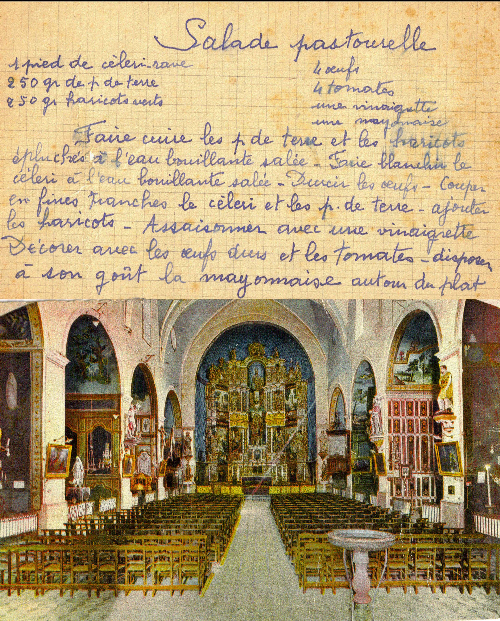 Salade pastourelle
1 pied de cèleri-rave
250 gr de p. de terre
250 gr haricots verts
4 œufs
4 tomates
une vinaigrette
une mayonnaise
Faire cuire les p. de terre et les haricots
épluchés à l'eau bouillante salée - Faire blanchir le
cèleri à l'eau bouillante salée - Durcir les œufs - Couper
en fines tranches le cèleri et les p. de terre - ajouter
les haricots - Assaisonner avec une vinaigrette
Décorer avec les œufs durs et les tomates - disposer
à son goût la mayonnaise autour du plat